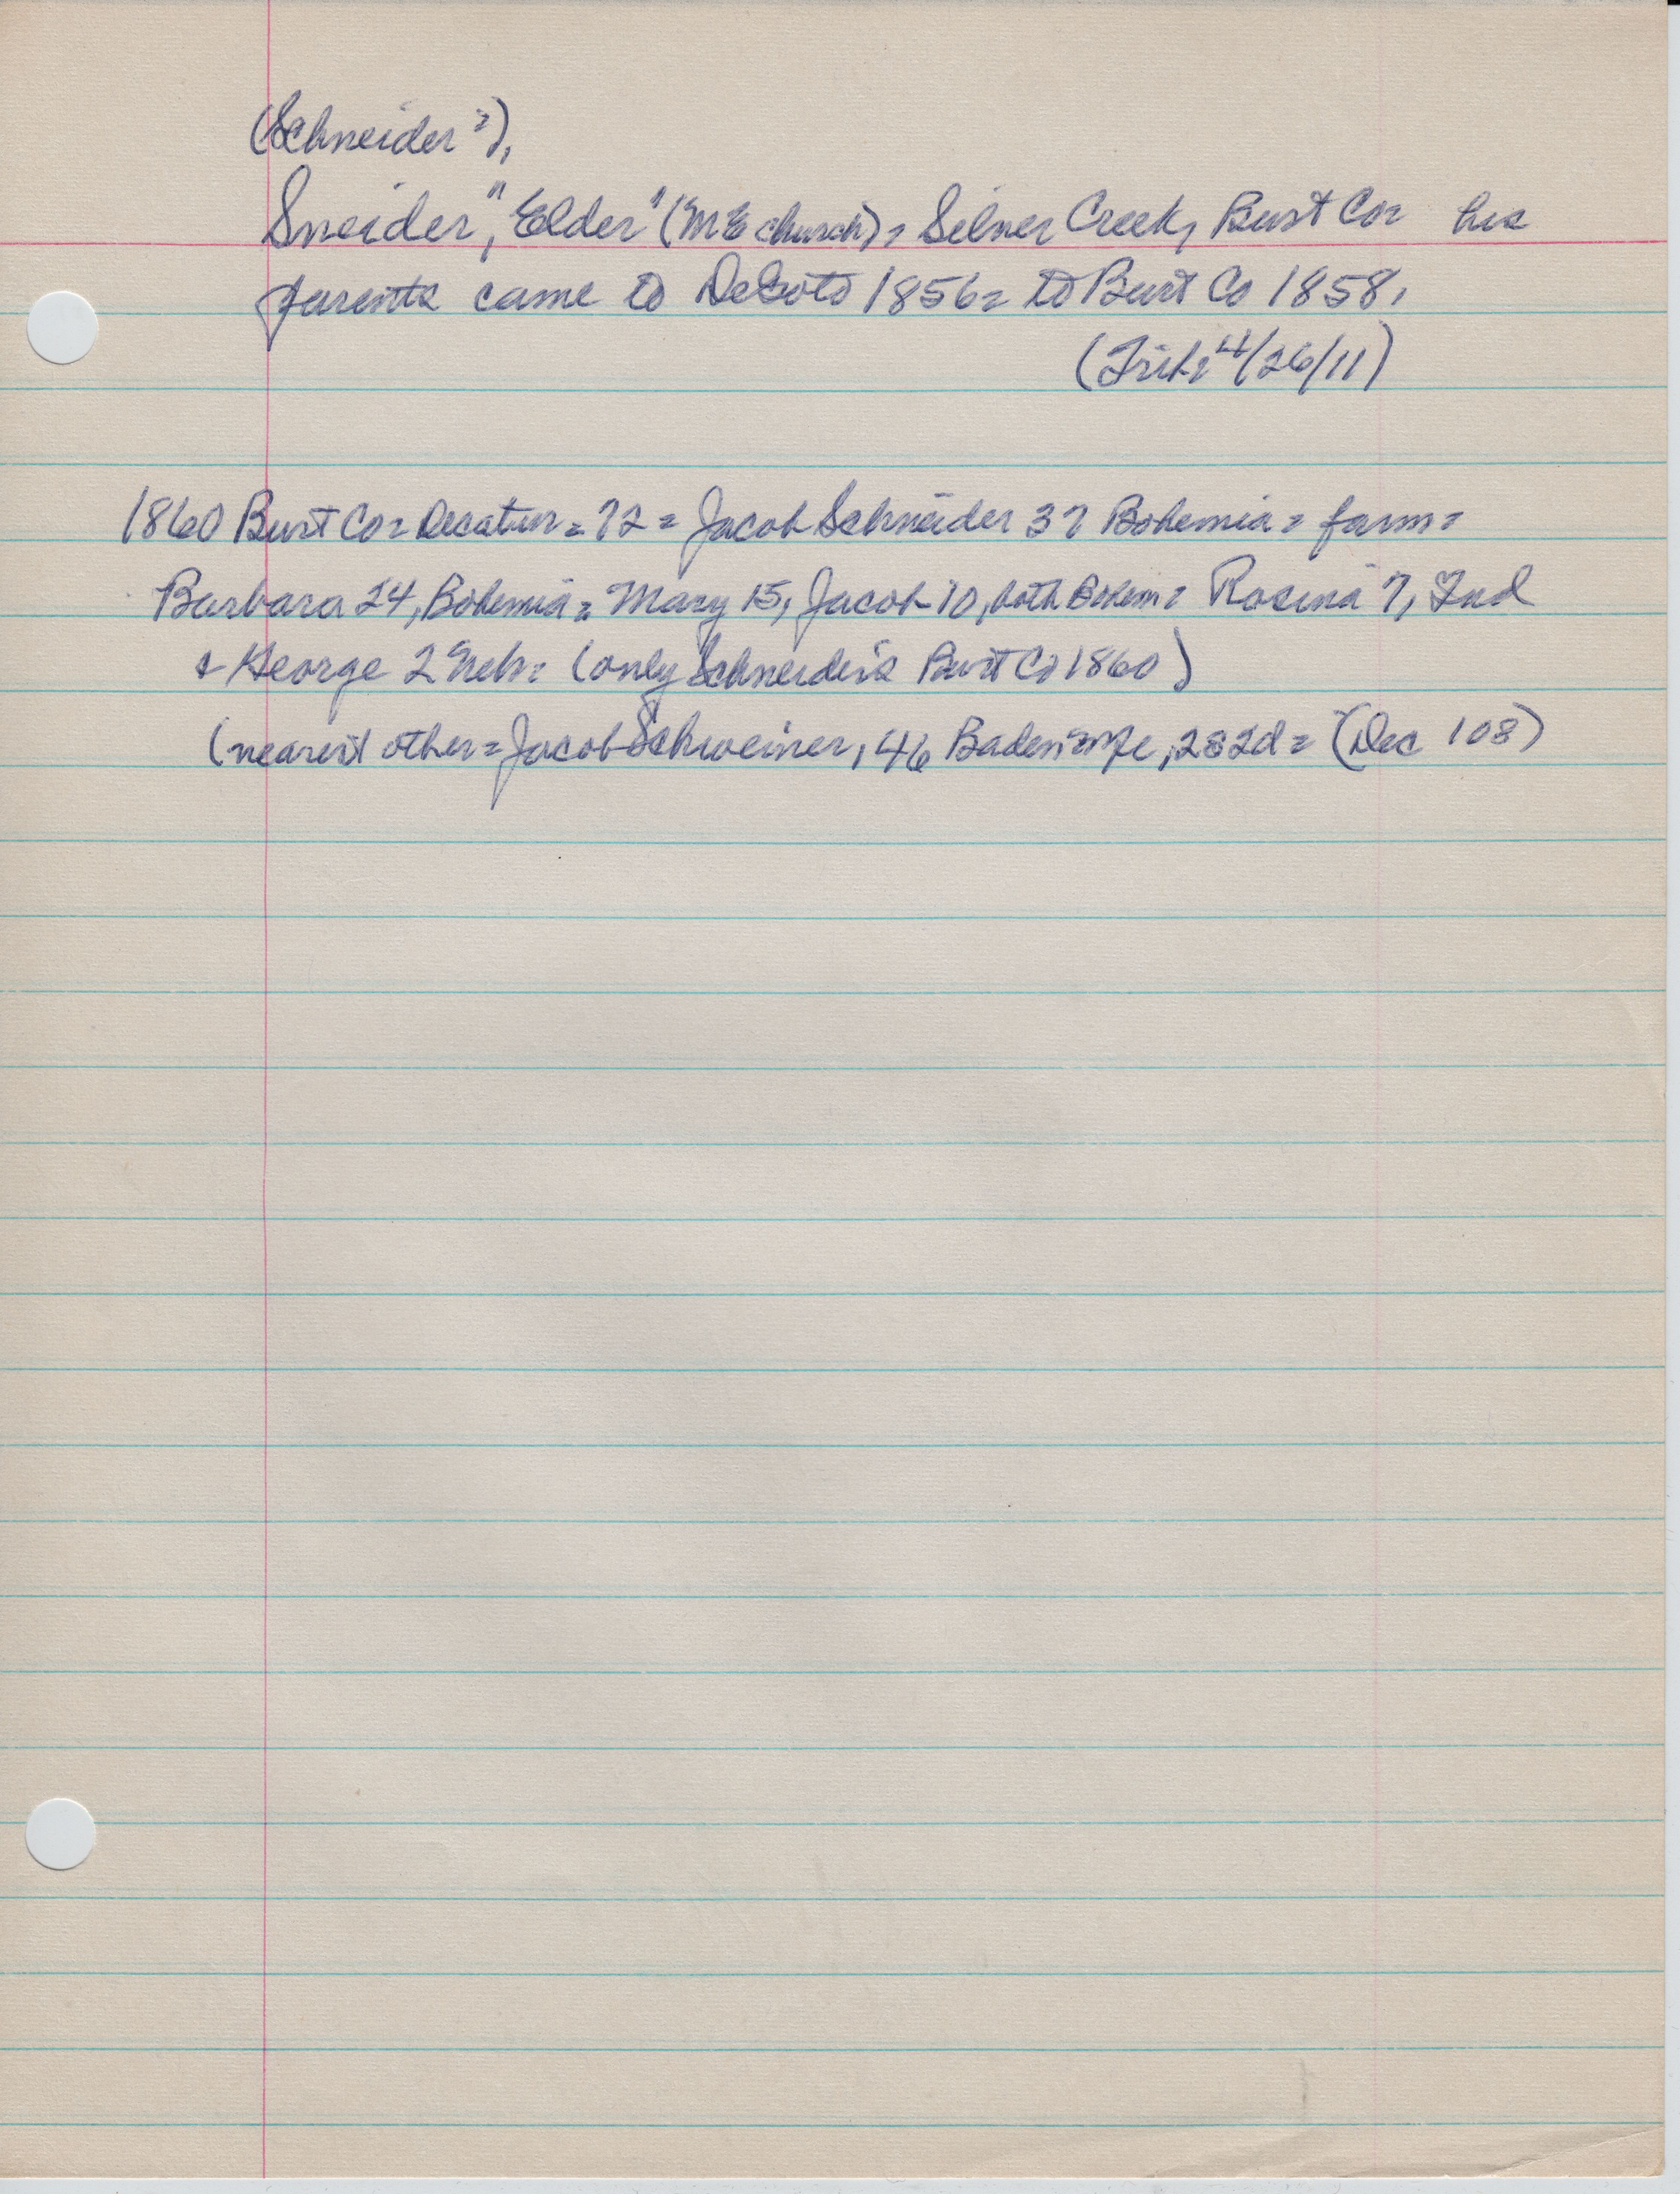 (Schneider?),
Sneider, "Elder" (ME church), Silver Creek, Burt Co= his
parents came to DeSoto 1856= to Burt Co 1858,
(4/26/11)
1860 Burt Co= Decatur= 72= Jacob Schneider 37 Bohemia= farm=
Barbara 24, Bohemia= Mary 15, Jacob 10, both Bohem= Rosina 7, Ind
& George 2 Neb= (only Schneiders Burt Co 1860)
(nearest other= Jacob 46 Baden= (Dec 108)